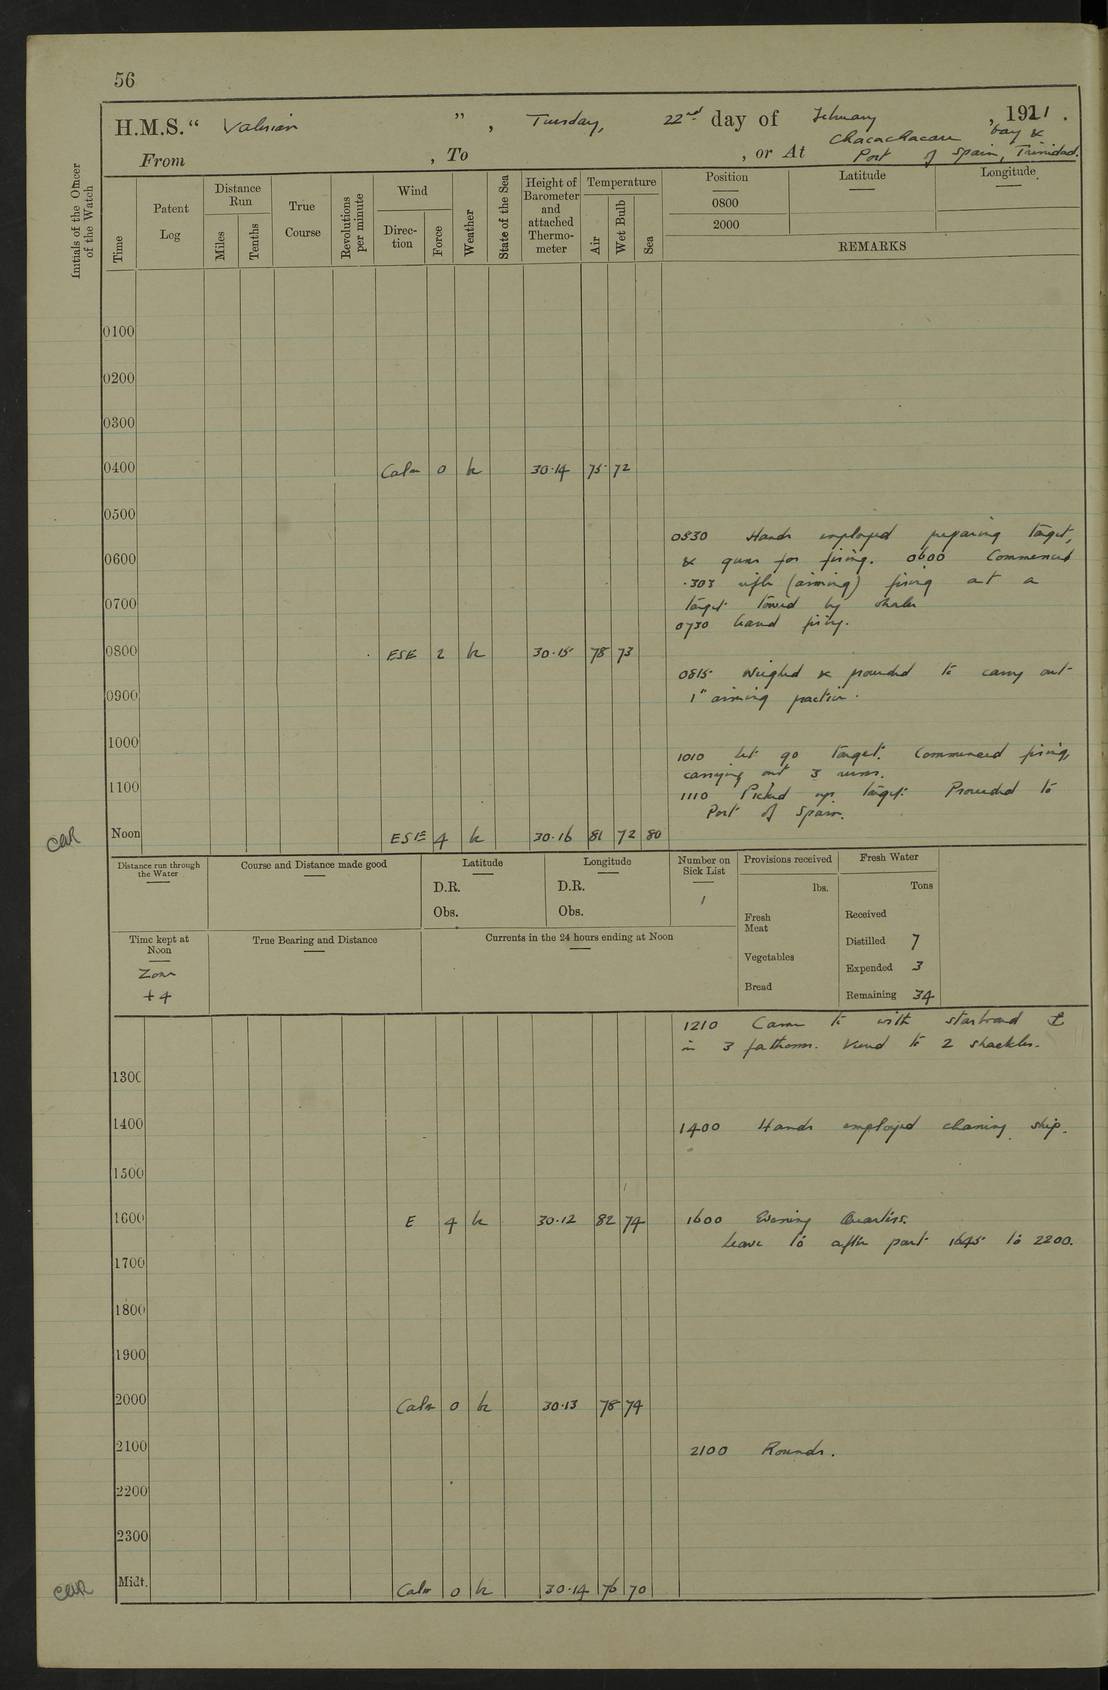 56
H.M.S. “ Valerian ” , Tuesday, 22nd day of February , 1921 .
From , To , or At Chacachacare bay & Port of Spain, Trinidad.
Initials of the Officer of the Watch
Time
Patent Log
Distance Run
Miles
Tenths
True Course
Revolutions per minute
Wind
Direction
Force
Weather
State of the Sea
Height of Barometer and attached Thermometer
Temperature
Air
Wet Bulb
Sea
Position
0800
2000
Latitude
Longitude
REMARKS
0100
0200
0300
0400 Calm 0 b 30.14 75 72
0500
0530 Hands employed preparing target,
0600 & guns for firing. 0600 Commenced
.303 rifle (aiming) firing at a
0700 target towed by whaler
0730 Ceased firing.
0800 ESE 2 b 30.15 78 73
0815 Weighed & proceeded to carry out
0900 1" aiming practice.
1000
1010 let go target. Commenced firing,
carrying out 3 runs.
1100 1110 Picked up target. Proceeded to
Port of Spain.
Noon ESE 4 b 30.16 81 72 80
Distance run through the Water
Course and Distance made good
Latitude
D.R.
Obs.
Longitude
D.R.
Obs.
Number on Sick List
1
Provisions received
lbs.
Fresh Meat
Vegetables
Bread
Fresh Water
Tons
Received
Distilled 7
Expended 3
Remaining 34
Time kept at Noon
Zone
+4
True Bearing and Distance
Currents in the 24 hours ending at Noon
1210 Came to with starboard ⚓
in 3 fathoms. Veered to 2 shackles.
1300
1400 1400 Hands employed cleaning ship.
1500
1600 E 4 b 30.12 82 74 1600 Evening Quarters.
Leave to after part 1645 to 2200.
1700
1800
1900
2000 Calm 0 b 30.13 78 74
2100 2100 Rounds.
2200
2300
Midt. Calm 0 b 30.14 76 70